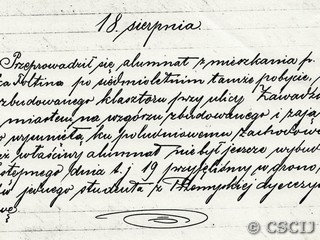 18. sierpnia.
Przeprowadził się alumnat z mieszkania p.
po siedmioletnim tamże pobycie,
zbudowanego klasztoru przy ulicy Zawadz
miastem, na wzgórzu zbudowanego i zają
wysuniętą ku południowemu zachodow
właściwy alumnat nie był jeszcze wybud
stępnego dnia t. j. 19 przyjęliśmy w grono,
jednego studenta z Przemyskiej dyecezyi
© CSCIJ